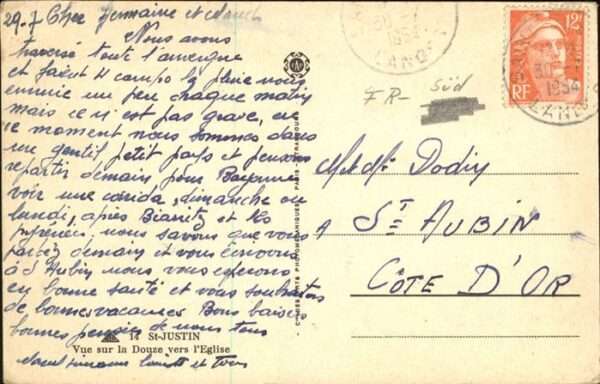 29.7 Cher Germaine et
Nous avons
traversé toute l'auvergne
et faisant 4 campo la pluie nous
ennuie un peu chaque matin
mais ce n'est pas grave, en
ce moment nous sommes dans
un gentil petit pays et pensons
repartir demain pour Bayonne
voir une corrida, dimanche ou
lundi, après Biarritz et les
pyrénées. nous savons que vous
partez demain et vous écrivons
à St Aubin nous vous espérons
en bonne santé et vous souhaitons
de bonnes vacances Bons baisers
bonnes pensées de nous tous
et tous
14 St-JUSTIN
Vue sur la Douze vers l'Eglise
PARIS - STRASBOURG
FR- Süd
12F
RF
1954
LANDES
30
1954
LANDES
M et Me Dodin
A ST AUBIN
CÔTE D'OR